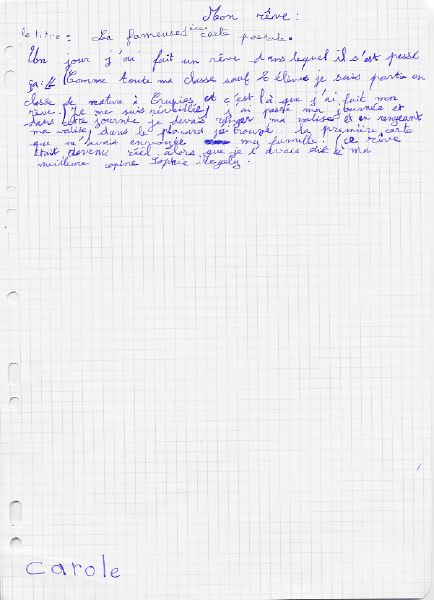 Mon rêve :
le titre : La fameuses 1ère carte postale.
Un jour j'ai fait un rêve dans lequel il s'est passé
ça : Comme toute ma classe sauf 2 élève je suis partie en
classe de nature à Erupies et c'est là que j'ai fait mon
rêve. Je me suis réveillée j'ai passé ma journée et
dans cette journée je devais ranger ma valise et en rangeant
ma valise, dans le placard je trouve la première carte
que m'avais envoyée ma famille. Ce rêve
était devenu réel alors que je l'avais dit à ma
meilleure copine Sophie
Carole